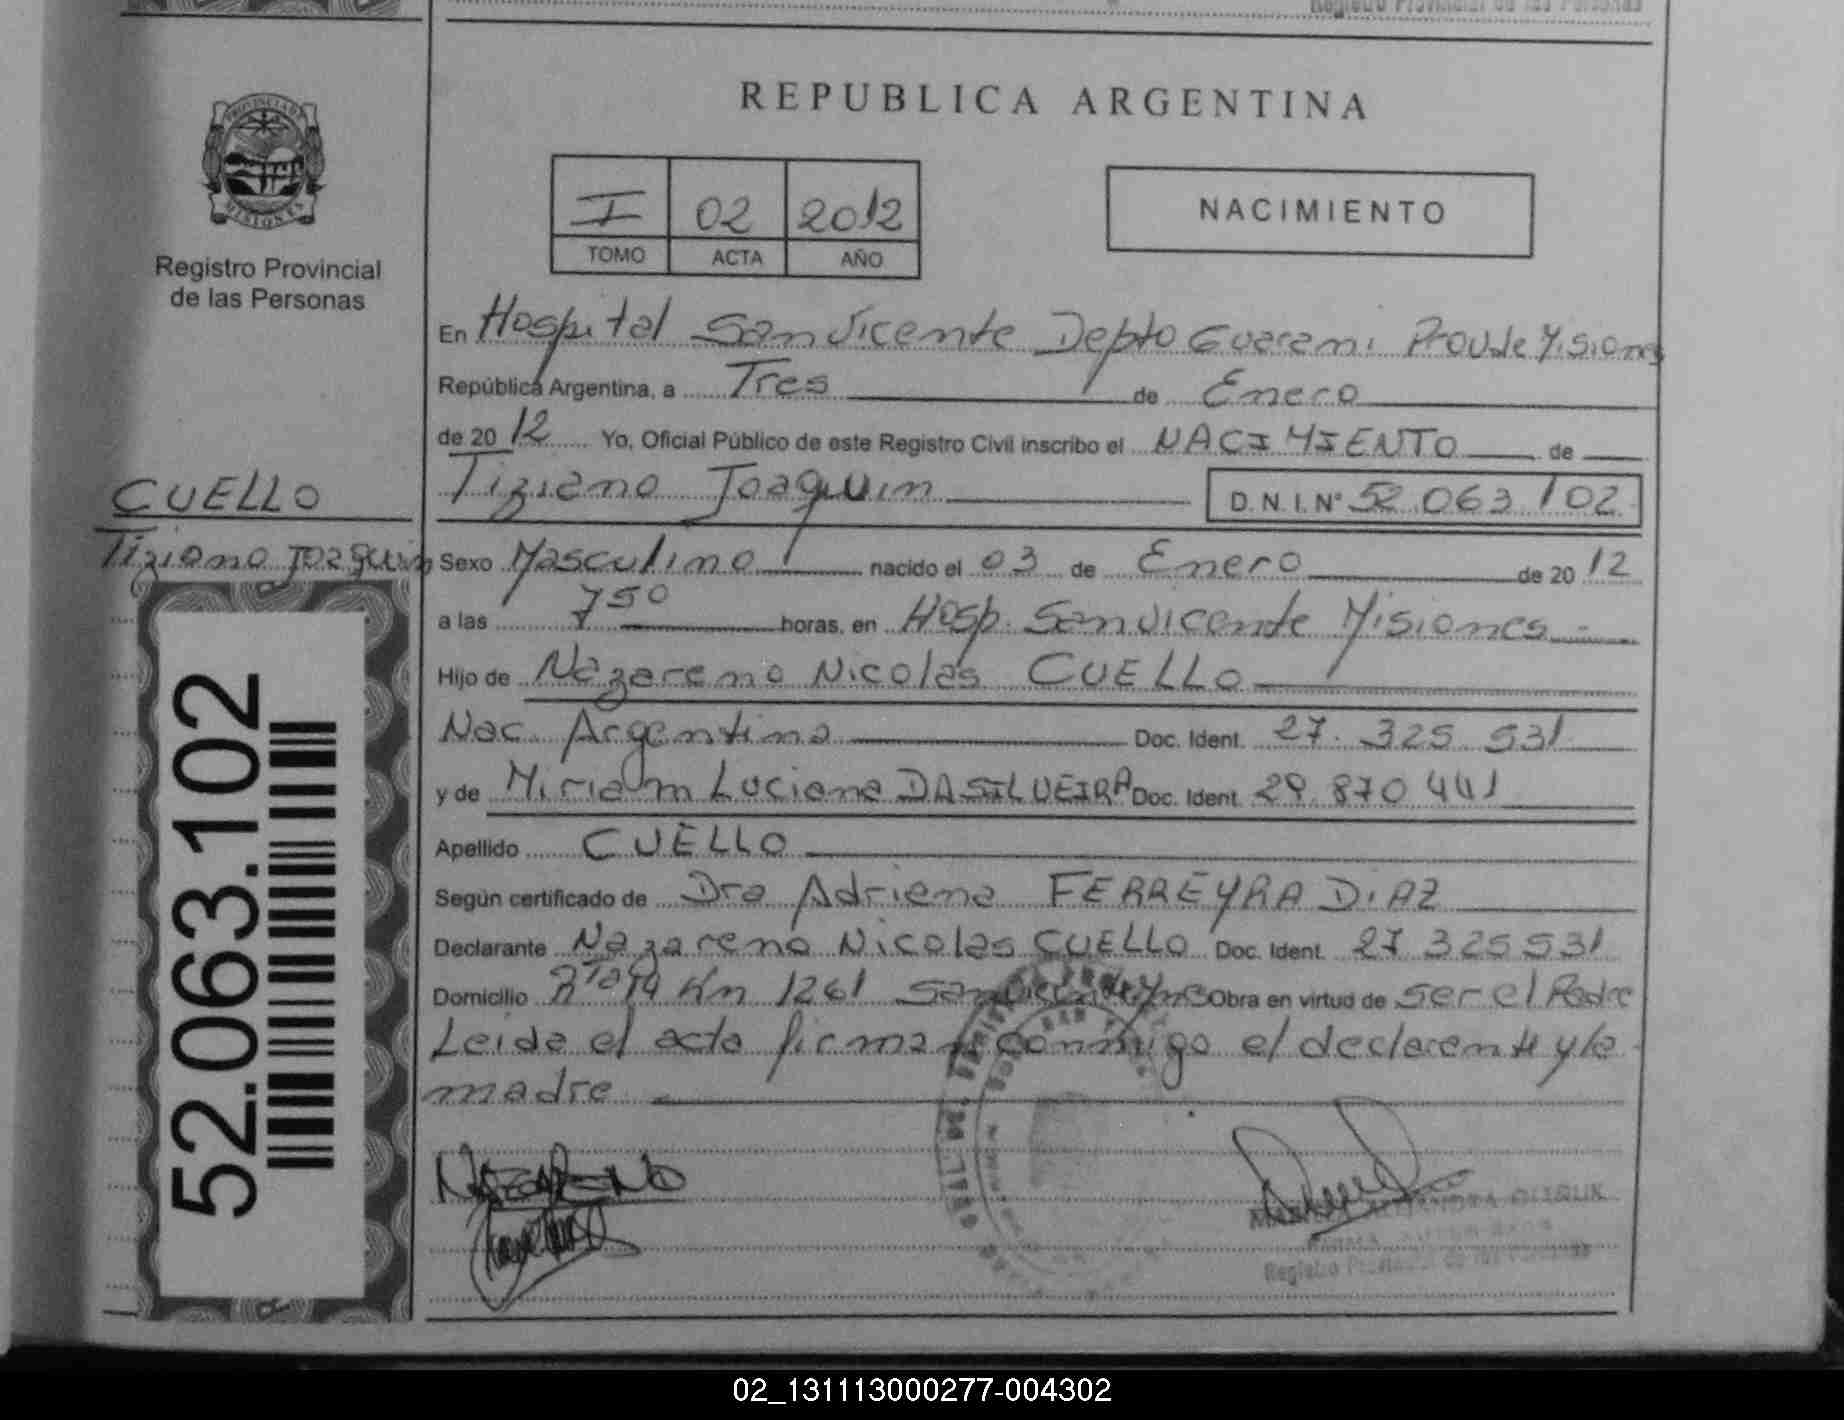 Registro Provincial de las Personas
REPUBLICA ARGENTINA
PROVINCIA DE MISIONES
Registro Provincial
de las Personas
I 02 2012
TOMO ACTA AÑO
NACIMIENTO
En Hospital San Vicente Depto Guarani Prov de Misiones
República Argentina, a Tres de Enero
de 2012 Yo, Oficial Público de este Registro Civil inscribo el NACIMIENTO de
Tiziano Joaquin D.N.I.Nº 52.063.102
CUELLO
Tiziano Joaquin
Sexo Masculino nacido el 03 de Enero de 2012
a las 7 50 horas, en Hosp. San Vicente Misiones
Hijo de Nazareno Nicolas CUELLO
Nac. Argentina Doc. Ident. 27.325.531
y de Miriam Luciana DA SILVEIRA Doc. Ident. 29 870 441
Apellido CUELLO
Según certificado de Dra Adriana FERREYRA DIAZ
Declarante Nazareno Nicolas CUELLO Doc. Ident. 27 325 531
Domicilio Rta 14 Km 1261 San Vicente Mnes Obra en virtud de ser el Padre
Leida el acta firman conmigo el declarante y la
madre
52.063.102
NAZARENO
Registro Provincial de las Personas
02_131113000277-004302